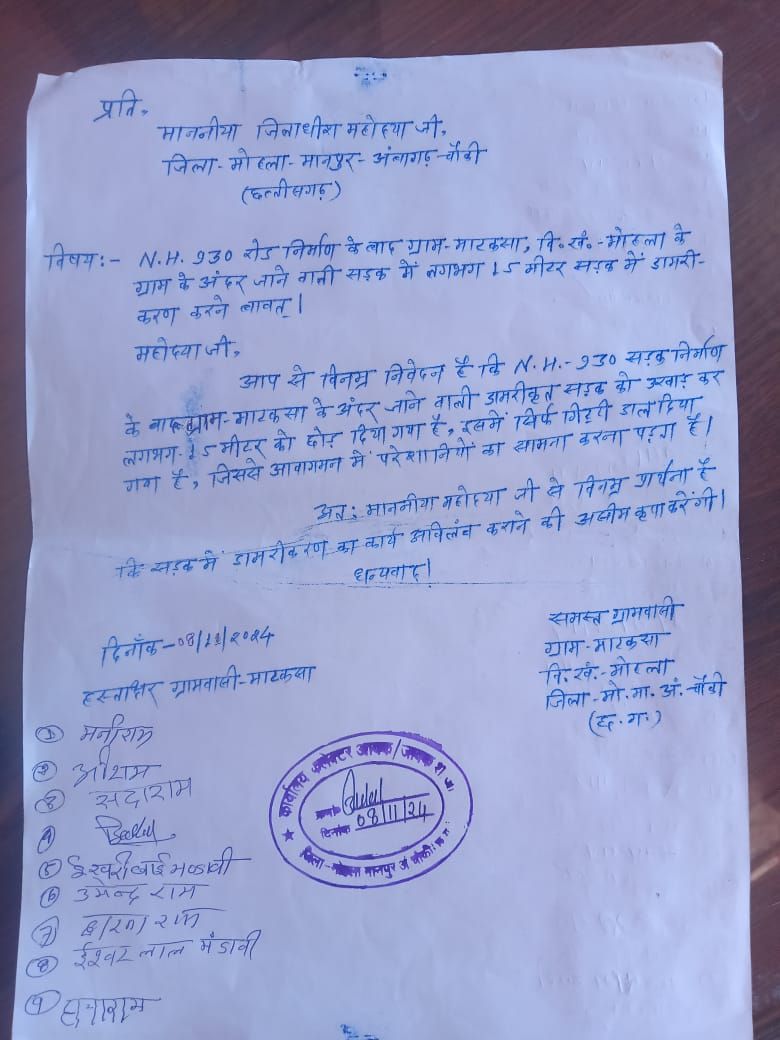 प्रति,
माननीया जिलाधीश महोदया जी,
जिला-मोहला-मानपुर-अंबागढ़-चौकी
(छत्तीसगढ़)
विषय:- N.H. 930 रोड निर्माण के बाद ग्राम-माटकसा, वि.खं.-मोहला के
ग्राम के अंदर जाने वाली सड़क में लगभग 15 मीटर सड़क में डामरी-
करण करने बावत्।
महोदया जी,
आप से विनम्र निवेदन है कि N.H.-930 सड़क निर्माण
के बाद ग्राम-माटकसा के अंदर जाने वाली डामरीकृत सड़क को उखाड़ कर
लगभग-15 मीटर को छोड़ दिया गया है, इसमें सिर्फ गिट्टी डाल दिया
गया है, जिससे आवागमन में परेशानियों का सामना करना पड़ रहा है।
अत: माननीया महोदया जी से विनम्र प्रार्थना है
कि सड़क में डामरीकरण का कार्य अविलंब कराने की असीम कृपा करेंगी।
धन्यवाद।
समस्त ग्रामवासी
ग्राम-माटकसा
वि.खं.-मोहला
जिला-मो.मा.अं.चौकी
(छ.ग.)
दिनाँक-08/11/2024
हस्ताक्षर ग्रामवासी-माटकसा
① मनीराम
② श्रीराम
③ सदाराम
④
⑤ ईश्वरी बाई मण्डावी
⑥ उमेन्द्र राम
⑦
⑧ ईश्वर लाल मंडावी
⑨
कार्यालय कलेक्टर आवक/जावक शा.
दिनांक 08/11/24
जिला-मोहला मानपुर अं चौकी